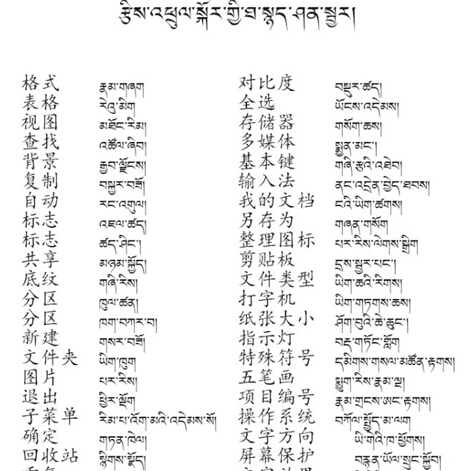 རྩིས་འཕྲུལ་སྐོར་གྱི་ཐ་སྙད་ཤན་སྦྱར།
格式 རྣམ་གཞག 对比度 བསྡུར་ཚད།
表格 རེའུ་མིག 全选 ཡོངས་འདེམས།
视图 མཐོང་རིམ། 存储器 གསོག་ཆས།
查找 འཚོལ་ཞིབ། 多媒体 སྨྱན་མང་།
背景 རྒྱབ་ལྗོངས། 基本键 གཞི་རྩའི་འཐེབ།
复制 བསྐྱར་བཟོ། 输入法 ནང་འདྲེན་བྱེད་ཐབས།
自动 རང་འགུལ། 我的文档 ངའི་ཡིག་ཚགས།
标志 འཇལ་ཚད། 另存为 གཞན་གསོག
标志 ཚད་ཤིང་། 整理图标 པར་རིས་ལེགས་སྒྲིག
共享 མཉམ་སྤྱོད། 剪贴板 དྲས་སྦྱར་པང་།
底纹 གཞི་རིས། 文件类型 ཡིག་ཆའི་རིགས།
分区 ཁུལ་ཚན། 打字机 ཡིག་གཏགས་ཆས།
分区 ཁག་བཀར་བ། 纸张大小 ཤོག་བུའི་ཆེ་ཆུང་།
新建 གསར་བཟོ། 指示灯 བརྡ་གཏོང་གློག
文件夹 ཡིག་ཁུག 特殊符号 དམིགས་གསལ་མཚོན་རྟགས།
图片 པར་རིས། 五笔画 སྨྱུག་རིས་རྣམ་ལྔ།
退出 ཕྱིར་ལྡོག 项目编号 རྣམ་གྲངས་ཨང་རྟགས།
子菜单 རིམ་པ་འོག་མའི་འདེམས་སོ། 操作系统 བཀོལ་སྤྱོད་མ་ལག
确定 གཏན་ཁེལ། 文字方向 ཡི་གེའི་ཁ་ཕྱོགས།
回收站 སྙིགས་སྣོད། 屏幕保护 བརྙན་ཡོལ་སྲུང་སྐྱོབ།